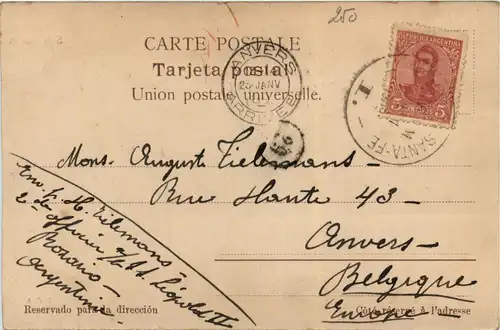 250
CARTE POSTALE
Tarjeta postal
Union postale universelle.
ANVERS
25 JANV
ARRIVÉE
REPUBLICA ARGENTINA
5 5
SANTA-FE
Mons. Auguste Tielemans —
Rue Haute 43 —
Anvers —
Belgique
Europe
Env. F. H. Tielemans
2de officier a/b SS Léopold II
Rosario —
Argentine.
Reservado para la dirección
Côté réservé à l'adresse